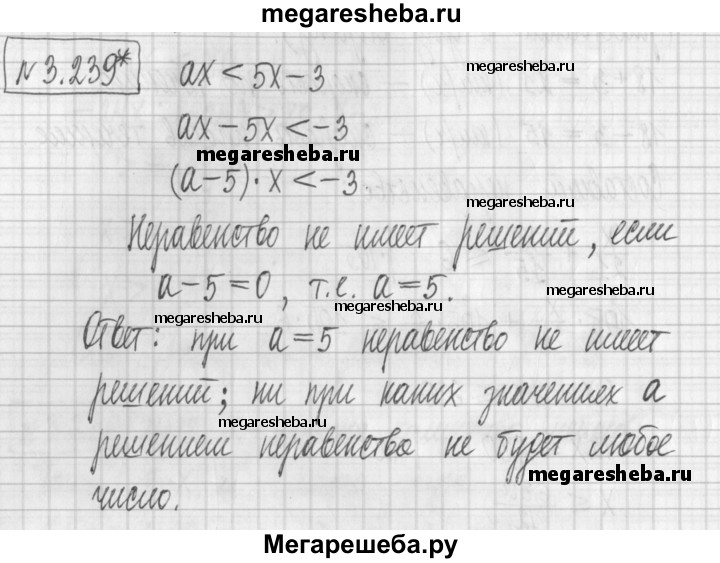 megaresheba.ru
№ 3.239*
ax < 5x − 3
megaresheba.ru
ax − 5x < −3
megaresheba.ru
(a−5)·x < −3.
megaresheba.ru
Неравенство не имеет решений, если
a − 5 = 0, т.е. a = 5.
megaresheba.ru
megaresheba.ru
megaresheba.ru
Ответ: при a = 5 неравенство не имеет
решений; ни при каких значениях a
megaresheba.ru
решением неравенства не будет любое
megaresheba.ru
число.
Мегарешеба.ру